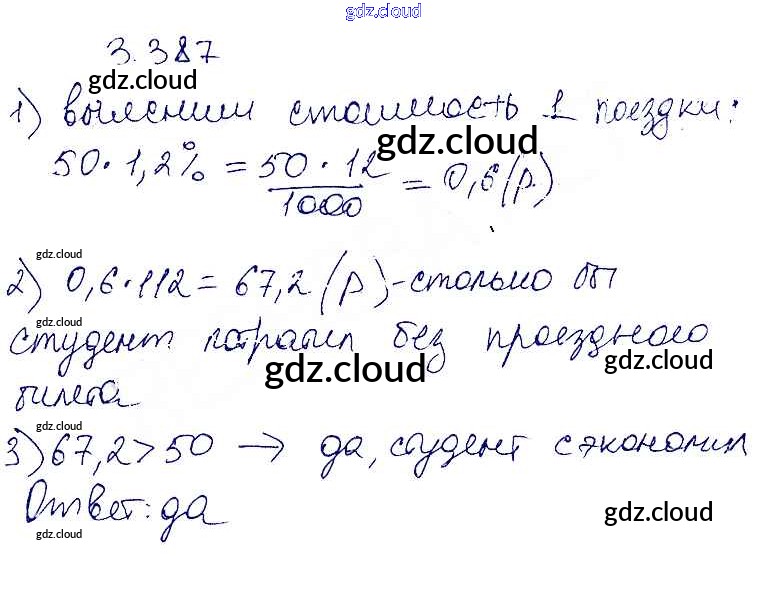 gdz.cloud
3.387
gdz.cloud
1) выясним стоимость 1 поездки:
gdz.cloud
50 · 1,2% = 50 · 12 / 1000 = 0,6 (р.)
gdz.cloud
2) 0,6 · 112 = 67,2 (р) - столько бы
gdz.cloud
студент потратил без проездного
gdz.cloud gdz.cloud
билета
gdz.cloud
3) 67,2 > 50 → да, студент сэкономил
gdz.cloud
Ответ: да
gdz.cloud
gdz.cloud